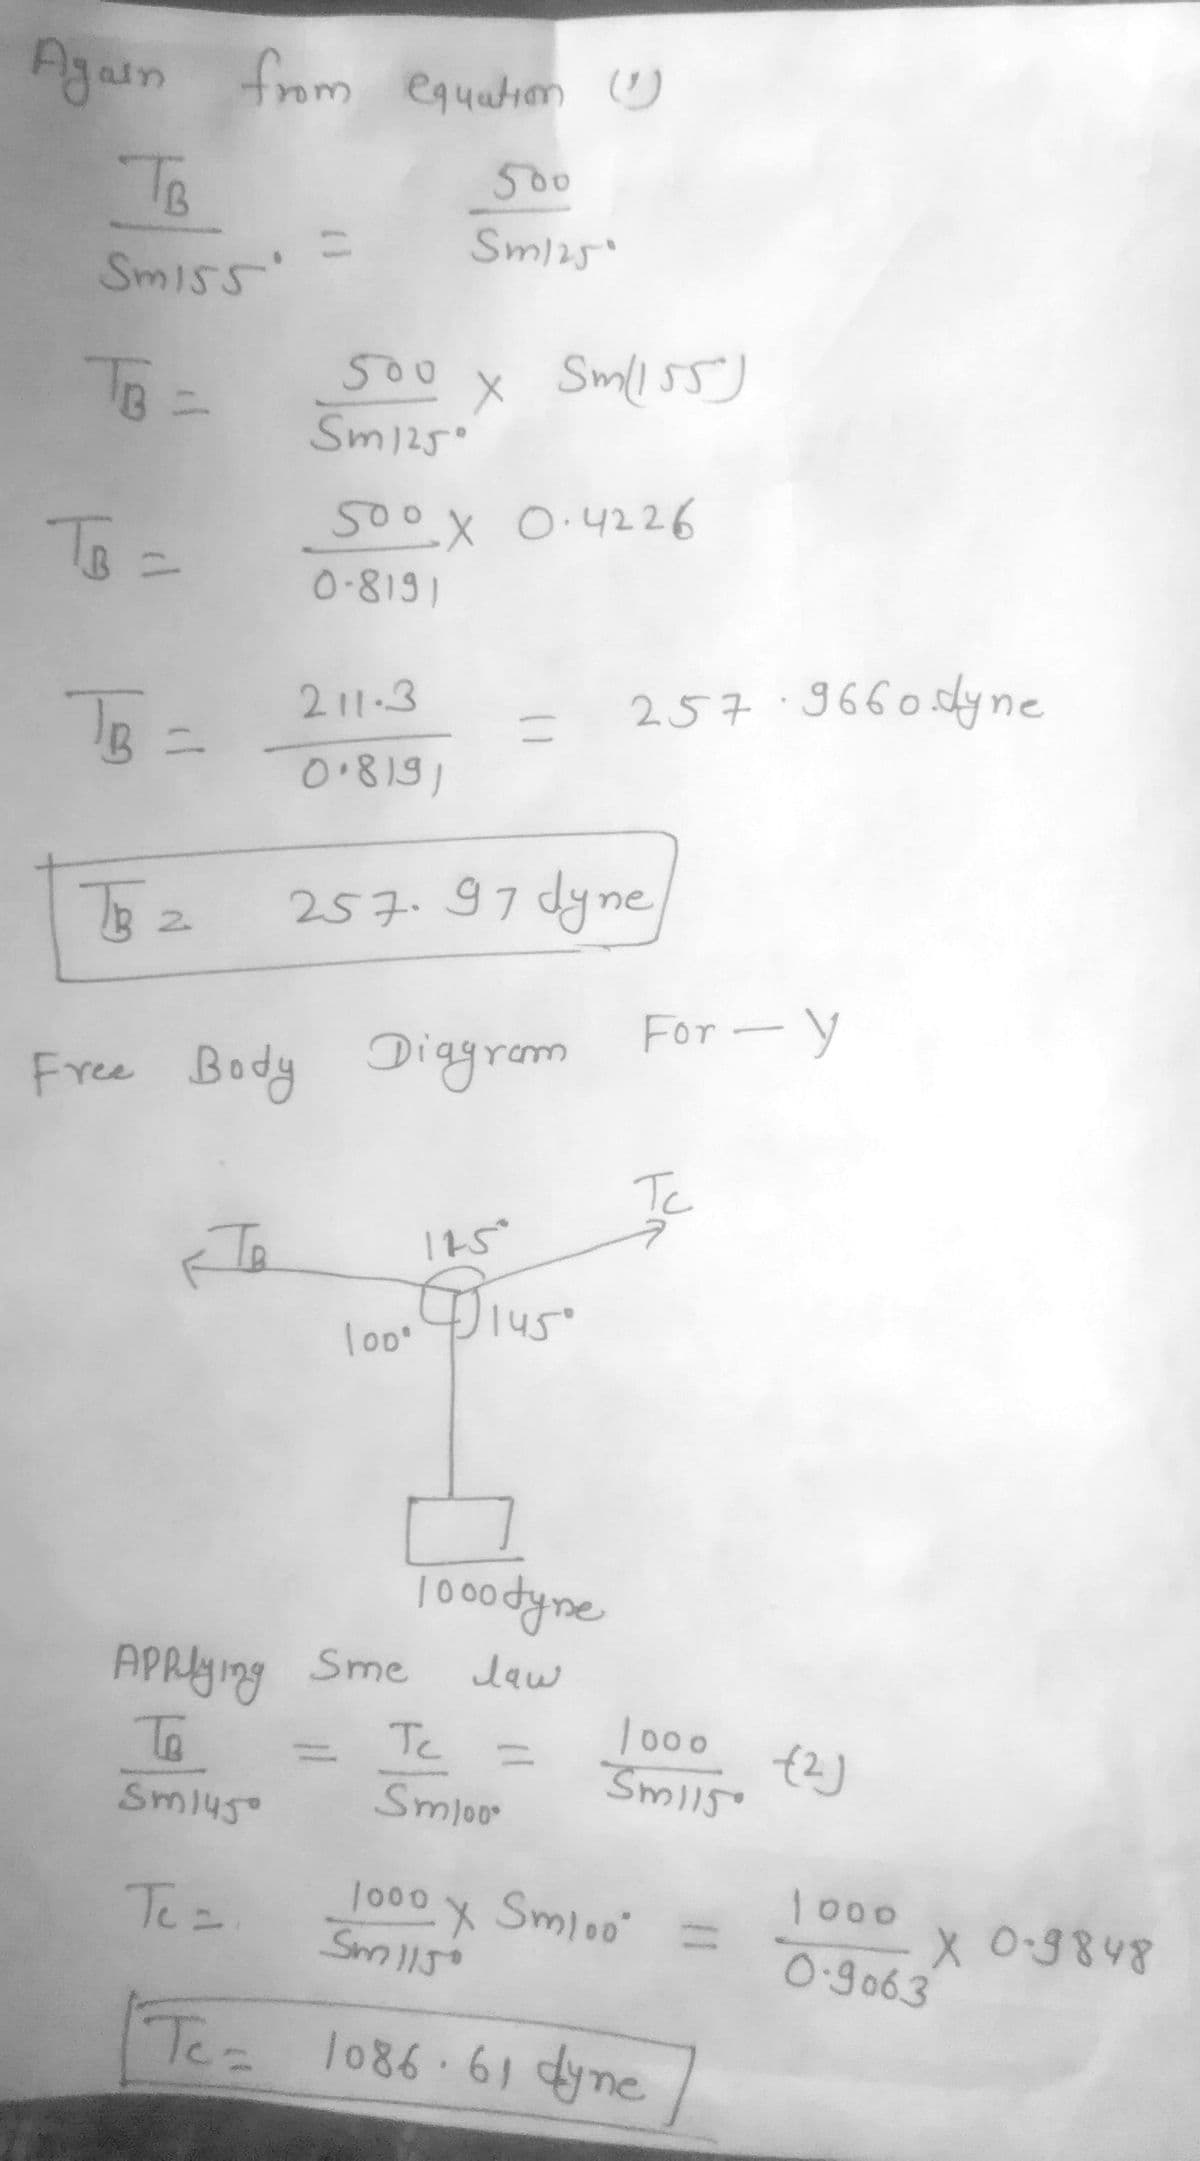 Again from equation (1)
TB / Sin155° = 500 / Sin125°
TB = 500 / Sin125° × Sin(155°)
TB = 500 / 0.8191 × 0.4226
TB = 211.3 / 0.8191 = 257.9660.dyne
TB = 257.97 dyne
Free Body Diagram For — y
TB 115° Tc
100° 145°
1000 dyne
APPlying Sine law
TB / Sin145° = Tc / Sin100° = 1000 / Sin115° (2)
Tc = 1000 / Sin115° × Sin100° = 1000 / 0.9063 × 0.9848
Tc = 1086.61 dyne